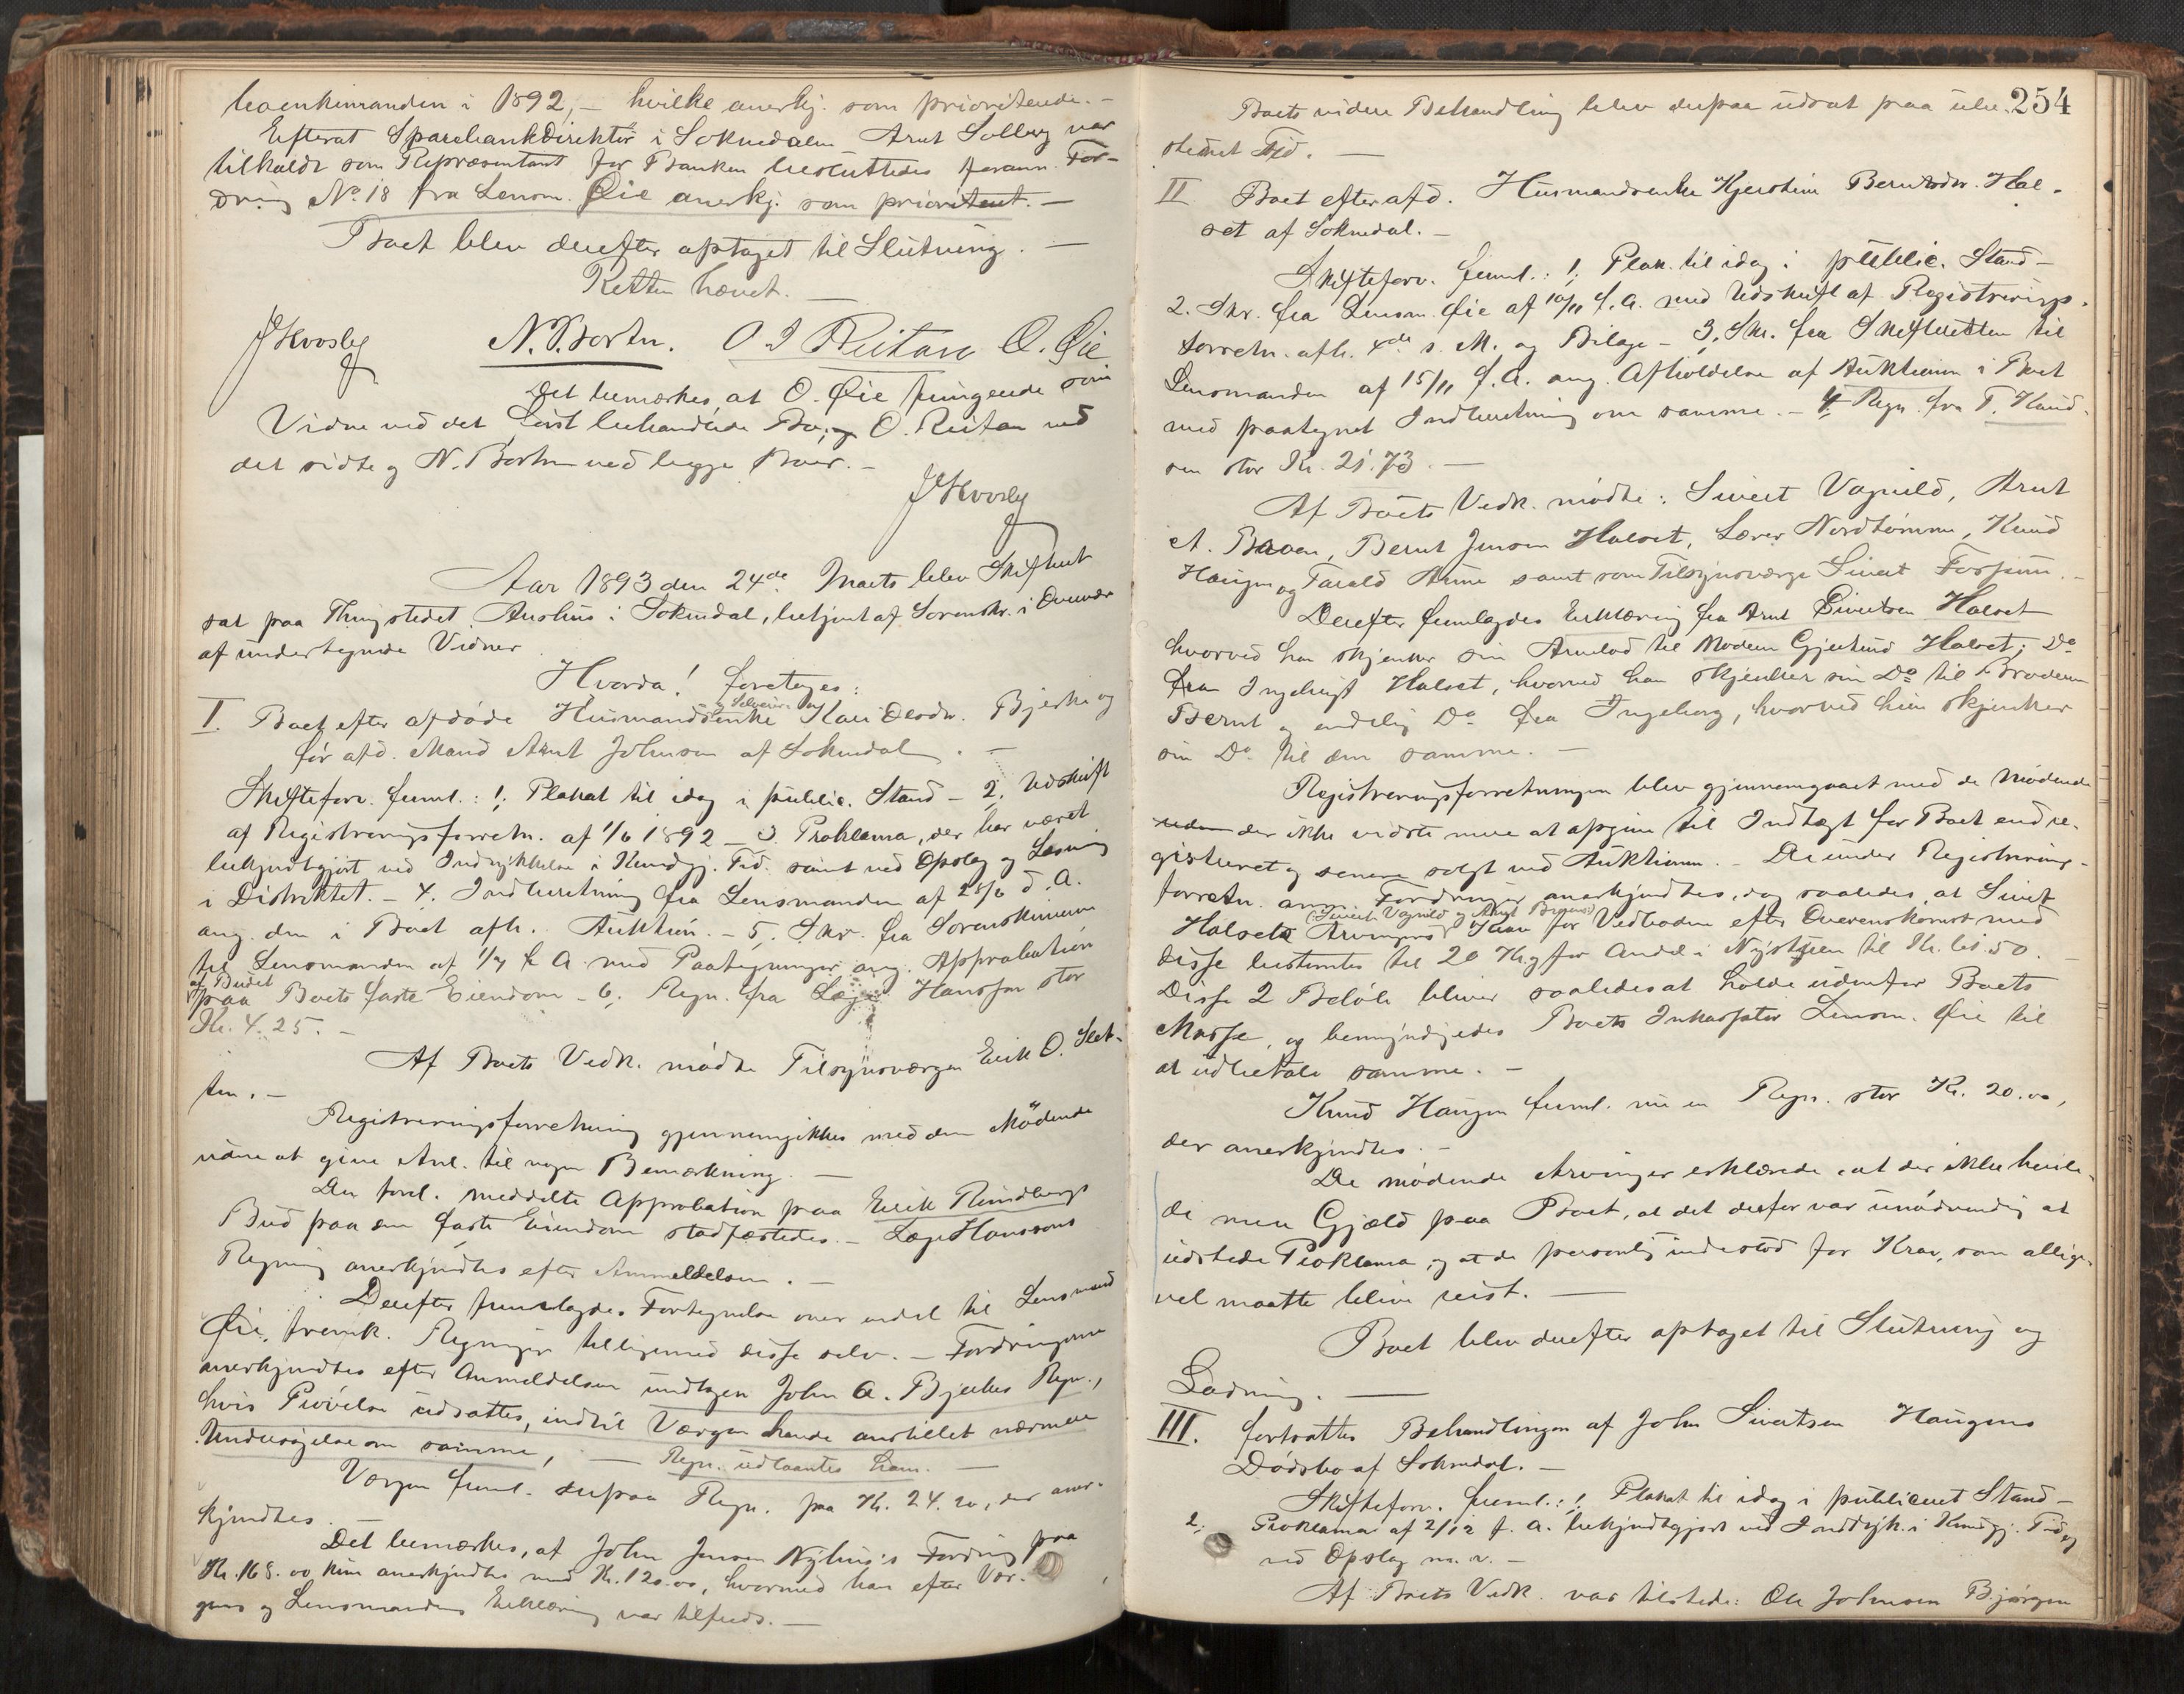 1892, – hvilke anerkj. som prioriterede. –
Efterat Sparebankdirektör i Soknedalen Arnt Solberg var
tilkaldt som Repræsentant for Banken besluttedes forann. For-
dring No 18 fra Lensm. Øie anerkj. som prioriteret. –
Boet blev derefter optaget til Slutning. –
Retten hævet. –
N. Bortn. O J Reitan O. Øie
Det bemærkes, at O. Øie fungerede som
Vidne ved det först behandlede Bo, og O. Reitan ved
det sidste og N. Bortn ved begge Boer. –
Aar 1893 den 24de Marts blev Skifteret
sat paa Thingstedet Aushus i Soknedal, betjent af Sorenskr. i Overvær
af undertegnede Vidner
Hvorda! foretoges:
I. Boet efter afdöde Husmandsenke og Selveier Kari Olsdr. Bjerke og
för afd. Mand Arnt Johnsen af Soknedal. –
Skifteforv. freml.: 1, Plakat til idag i public. Stand – 2, Udskrift
af Registreringsforretn. af 1/6 1892 – 3 Proklama, der har været
bekjendtgjort ved Indrykkelse i Kundgj. Tid. samt ved Opslag og Læsning
i Distriktet. – 4. Indberetning fra Lensmanden af 25/6 d. A.
ang. den i Boet afh. Auktion. – 5, Skr. fra Sorenskriveren
til Lensmanden af 1/7 f. A. med Paategninger ang. Approbation
af Budet
paa Boets faste Eiendom – 6, Regn. fra Læge Hansson stor
Kr. 4.25. –
Af Boets Vedk. mödte Tilsynsværgen Erik O. Slet-
ten. –
Registreringsforretning gjennemgikkes med den Mödende
uden at give Anl. til nogen Bemærkning. –
Den forel. meddelte Approbation paa Erik Rundbergs
Bud paa den faste Eiendom stadfæstedes. – Læge Hanssons
Regning anerkjendtes efter Anmeldelsen. –
Derefter fremlagdes Fortegnelse over endel til Lensmand
Øie, fremk. Regninger tilligemed disse selv. – Fordringerne
anerkjendtes efter Anmeldelsen undtagen John A. Bjerkes Regn.,
hvis Prövelse udsattes, indtil Værgen havde anstillet nærmere
Undersögelse om samme, – Regn. udlaantes ham. –
Værgen freml. derpaa Regn. paa Kr. 24.20, der aner-
kjendtes. –
Det bemærkes, at John Jensen Nyhus's Fordring paa
Kr. 168.00 kun anerkjendtes med Kr. 120.00, hvormed han efter Vær-
gens og Lensmandens Erklæring var tilfreds. –
254
Boets videre Behandling blev derpaa udsat paa ube-
stemt Tid. –
II Boet efter afd. Husmandsenke Kjerstine Berntsdr. Hal-
set af Soknedal. –
Skifteforv. freml.: 1, Plak. til idag i public. Stand –
2. Skr. fra Lensm. Øie af 10/11 f. A. med Udskrift af Registrerings-
forretn. afh. 4de s. M. og Bilage – 3, Skr. fra Skifteretten til
Lensmanden af 15/11 f. A. ang. Afholdelse af Auktionen i Boet
med paategnet Indberetning om samme. – 4, Regn. fra T. Haug-
en stor Kr. 21.73. –
Af Boets Vedk. mödte: Sivert Vagnild, Arnt
A. Bruen, Bernt Jensen Halset, Lærer Nordtömme, Knud
Haugen og Tarald Aune samt som Tilsynsværge Sivert
Derefter fremlagdes Erklæring fra Arnt Sivertsen Halset
hvorved han skjenker sin Arvelod til Moderen Gjertrud Halset; Do
fra Ingebrigt Halset, hvorved han skjenker sin Do til Broderen
Bernt og endelig Do fra Ingeborg, hvorved hun skjenker
sin Do til den samme. –
Registreringsforretningen blev gjennemgaaet med de Mödende
der ikke vidste mere at opgive til Indtægt for Boet end re-
gistreret og senere solgt ved Auktionen. – De under Registrerings-
forretn. anm. Fordringer anerkjendtes, dog saaledes, at Sivert
(Sivert Vagnild og Arnt Bruens)
Halsets Arvingers Krav for Vedboden efter Overenskomst med
disse bestemtes til 20 Kr og for Andel i til Kr. 61.50. –
Disse 2 Belöb bliver saaledes at holde udenfor Boets
Masse, og bemyndigedes Boets Inkassator Lensm. Øie til
at udbetale samme. –
Knud Haugen freml. nu en Regn. stor Kr. 20.00,
der anerkjendtes. –
De mödende Arvinger erklærede, at der ikke hvile-
de mere Gjæld paa Boet, at det derfor var unödvendig at
udstede Proklama, og at de personlig indestod for Krav, som allige-
vel maatte blive reist. –
Boet blev derefter optaget til Slutning og
Lodning. –
III. fortsattes Behandlingen af John Sivertsen Haugens
Dödsbo af Soknedal. –
Skifteforv. freml.: 1, Plakat til idag i publiceret Stand –
2, Proklama af 2/12 f. A. bekjendtgjort ved Indryk. i Kundgj. Tid og
ved Opslag m. v. –
Af Boets Vedk. var tilstede: Ole Johnsen Bjørgen